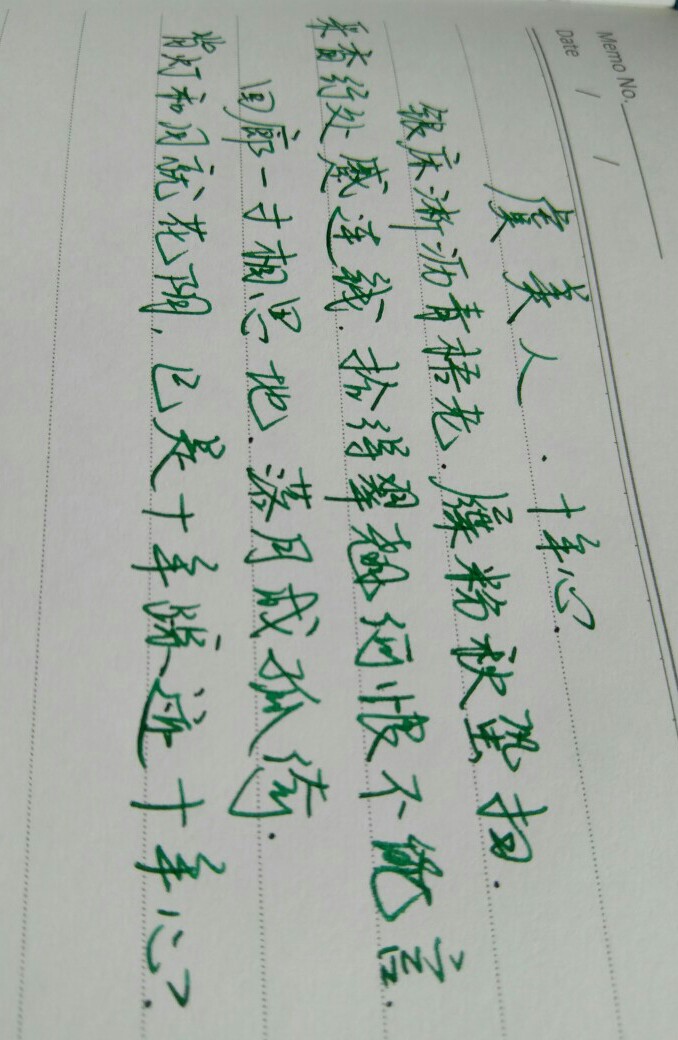 Memo No.
Date / /
虞美人·十年心.
银床淅沥青梧老.屧粉秋蛩扫.
采香行处蹙连钱.拾得翠翘何恨不能言.
回廊一寸相思地.落月成孤倚.
背灯和月就花阴,已是十年踪迹十年心.